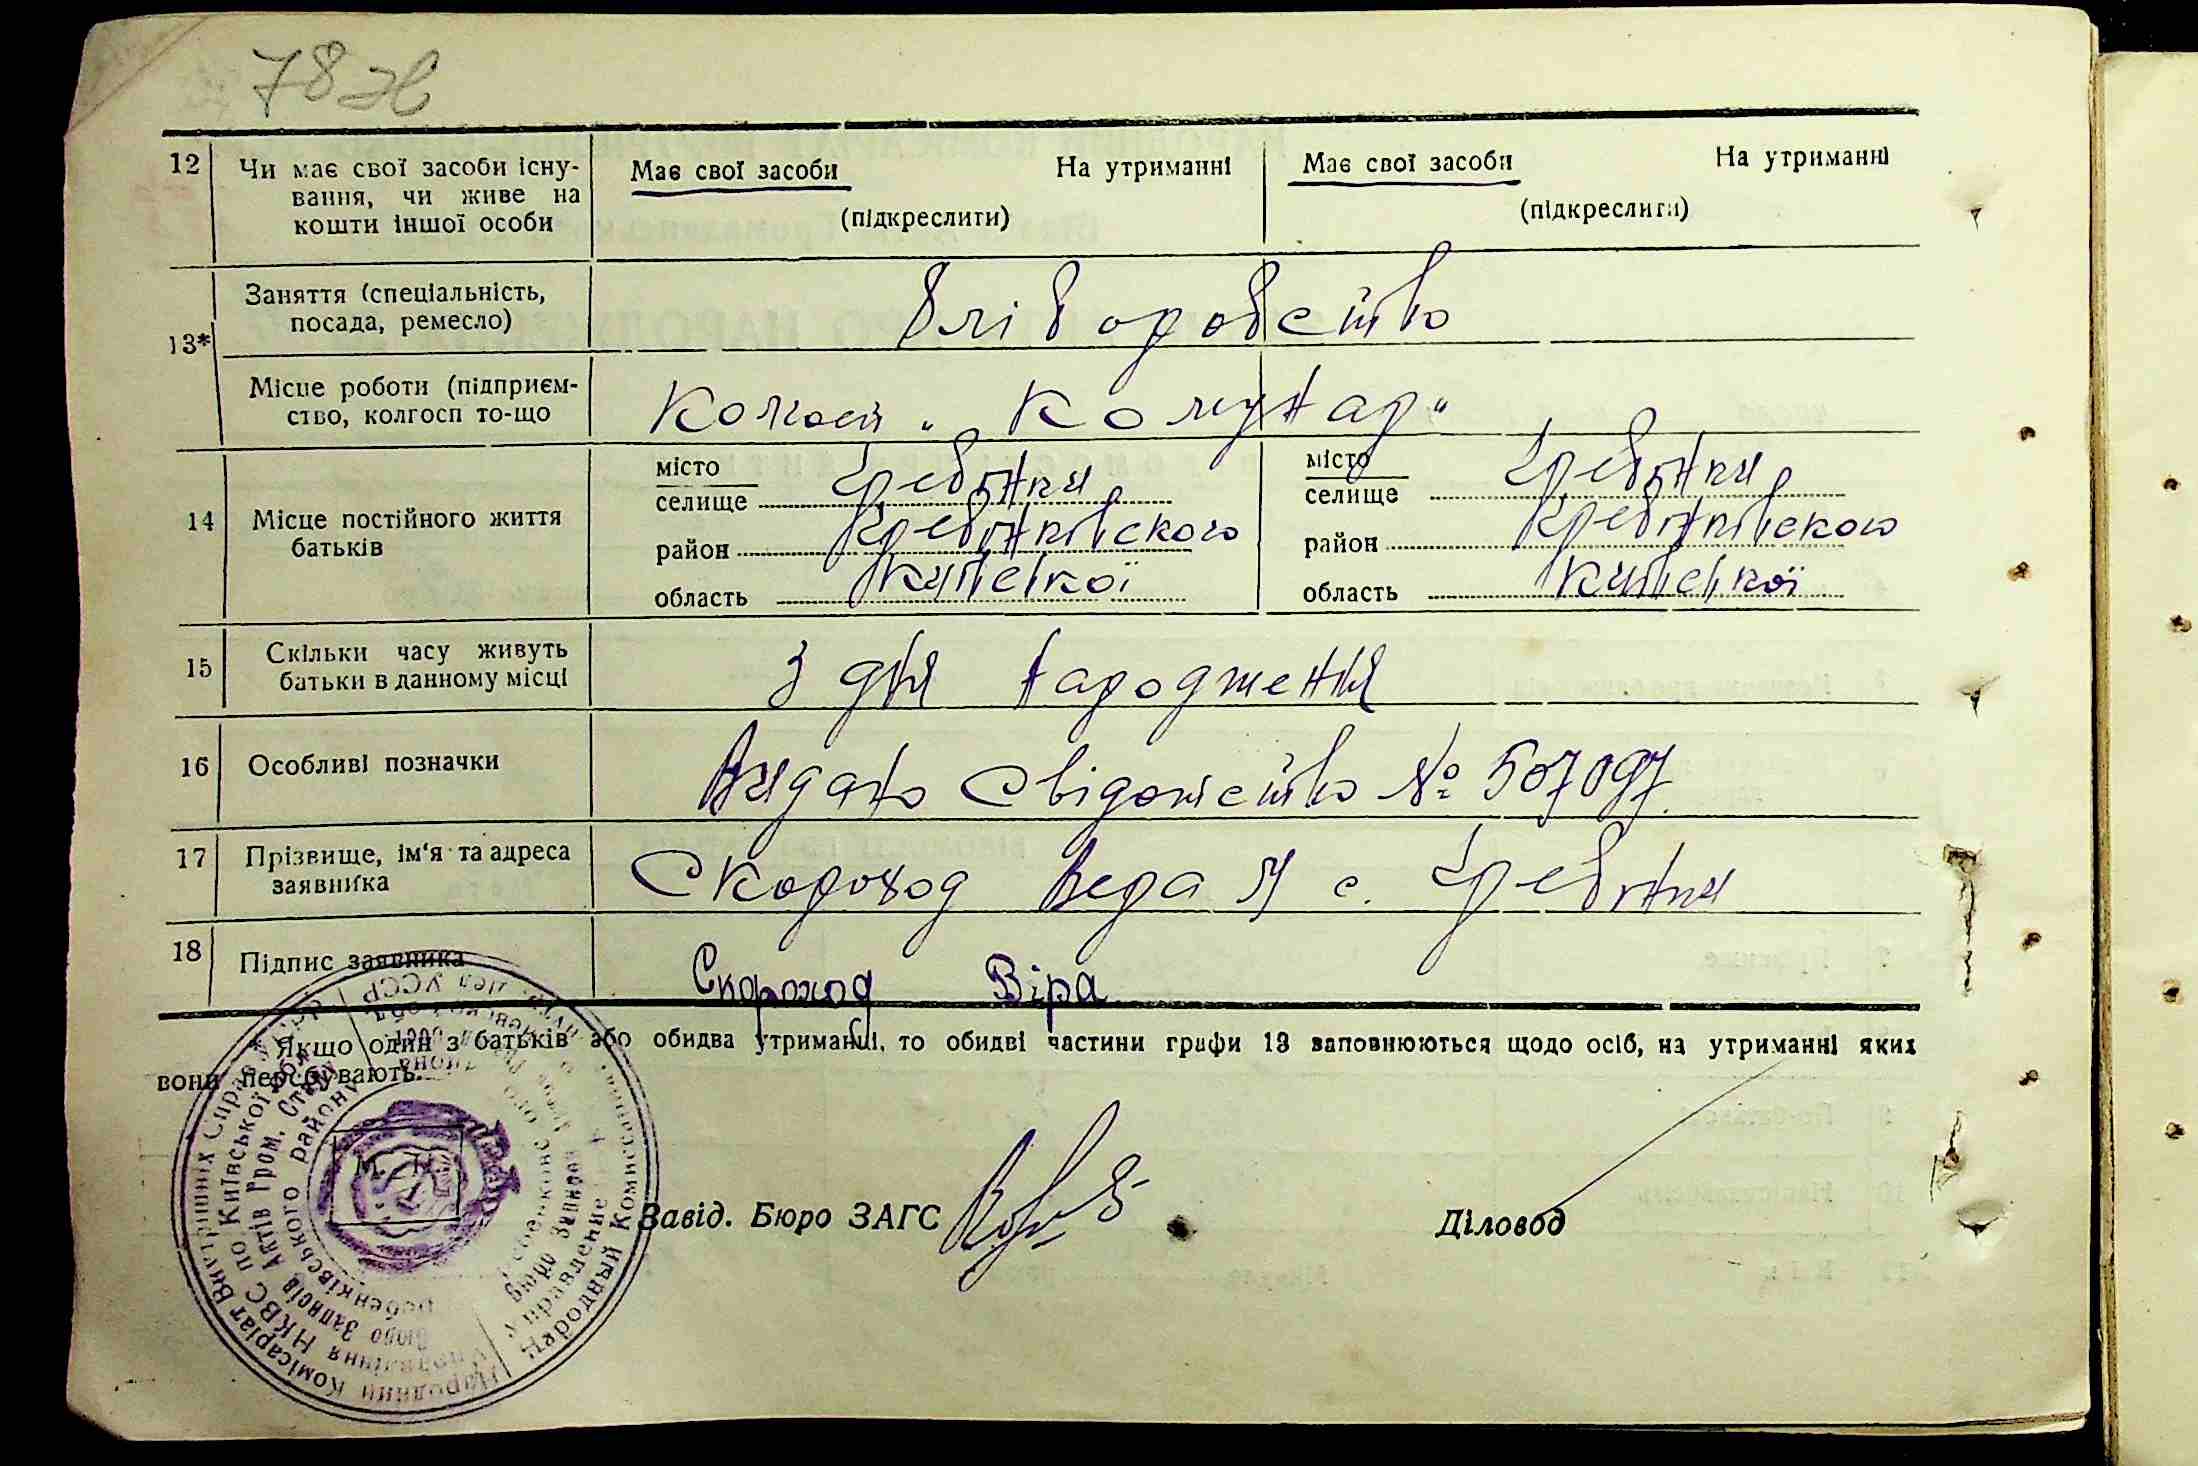 78 зв
12 Чи має свої засоби існу-
вання, чи живе на
кошти іншої особи
Має свої засоби На утриманні
(підкреслити)
Має свої засоби На утриманні
(підкреслити)
13* Заняття (спеціальність,
посада, ремесло)
Хліборобство
Місце роботи (підприєм-
ство, колгосп то-що
Колгосп „Комунар"
14 Місце постійного життя
батьків
місто
селище Гребінки
район Гребінківського
область Київської
місто
селище Гребінки
район Гребінківського
область Київської
15 Скільки часу живуть
батьки в данному місці
З дня народження
16 Особливі позначки
Видано Свідоцтво № 507097
17 Прізвище, ім'я та адреса
заявника
Скороход Вера с. Гребінки
18 Підпис заявника
Скороход Віра
* Якщо один з батьків або обидва утриманці, то обидві частини графи 13 заповнюються щодо осіб, на утриманні яких
вони перебувають.
Завід. Бюро ЗАГС
Діловод
М. П.
Народний Комісаріат Внутрішніх Справ
Управління НКВС по Київській обл.
Бюро Записів Актів Гром. Стану
Гребенківського району
Народный Комиссариат
Управление
Бюро Записей
УССР